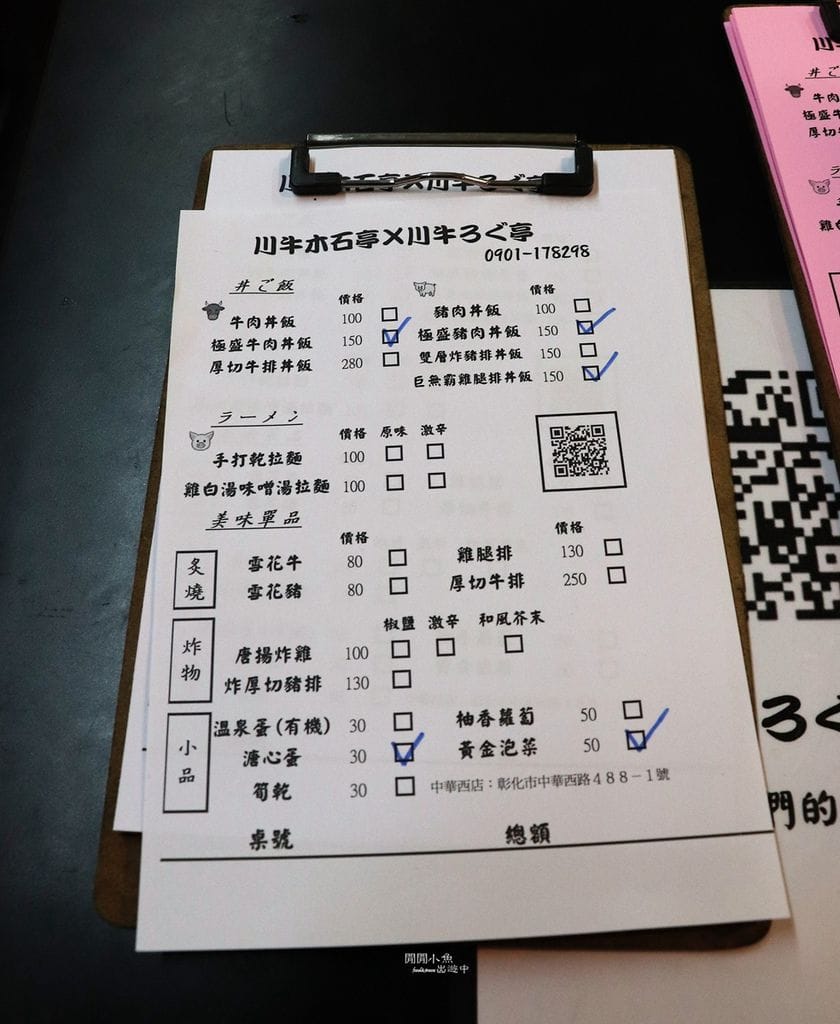 川牛木石亭X川牛ろぐ亭
0901-178298
丼ご飯
價格
牛肉丼飯 100
極盛牛肉丼飯 150
厚切牛排丼飯 280
價格
豬肉丼飯 100
極盛豬肉丼飯 150
雙層炸豬排丼飯 150
巨無霸雞腿排丼飯 150
ラーメン
價格 原味 激辛
手打乾拉麵 100
雞白湯味噌湯拉麵 100
美味單品
價格
炙燒
雪花牛 80
雪花豬 80
價格
雞腿排 130
厚切牛排 250
炸物
椒鹽 激辛 和風芥末
唐揚炸雞 100
炸厚切豬排 130
小品
溫泉蛋(有機) 30
溏心蛋 30
筍乾 30
柚香蘿蔔 50
黃金泡菜 50
中華西店：彰化市中華西路４８８－１號
桌號 總額
ろぐ
門的
閒閒小魚
出遊中